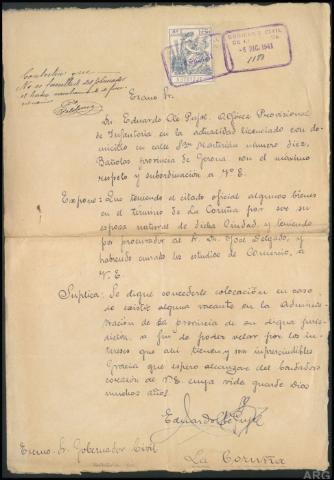 Contestar que
No es facultad del Gobernador
el hacer nombramiento de funcio
narios
GOBIERNO CIVIL
-5 DIC. 1941
1188
Excmo Sr.
Dn. Eduardo Clé Pujol, Alférez Provisional
de Infantería en la actualidad licenciado con do-
micilio en calle Sn. Martirián número diez,
Bañolas provincia de Gerona con el máximo
respeto y subordinación a Vª E.
Expone: Que teniendo el citado oficial algunos bienes
en el termino de La Coruña por ser su
esposa natural de dicha Ciudad, y teniendo
por procurador al Sr. Dn. José Delgado, y
habiendo cursado los estudios de Comercio, a
V. E.
Suplica: Se digne concederle colocación en caso
de existir alguna vacante en la Adminis-
tración de la provincia de su digna juris-
dicción a fin de poder velar por los in-
tereses que ahí tienen y son imprescindibles
Gracia que espero alcanzar del bondadoso
corazón de V.E. cuya vida guarde Dios
muchos años.
Eduardo Clé Pujol
Excmo. Sr. Gobernador Civil
La Coruña
ARG